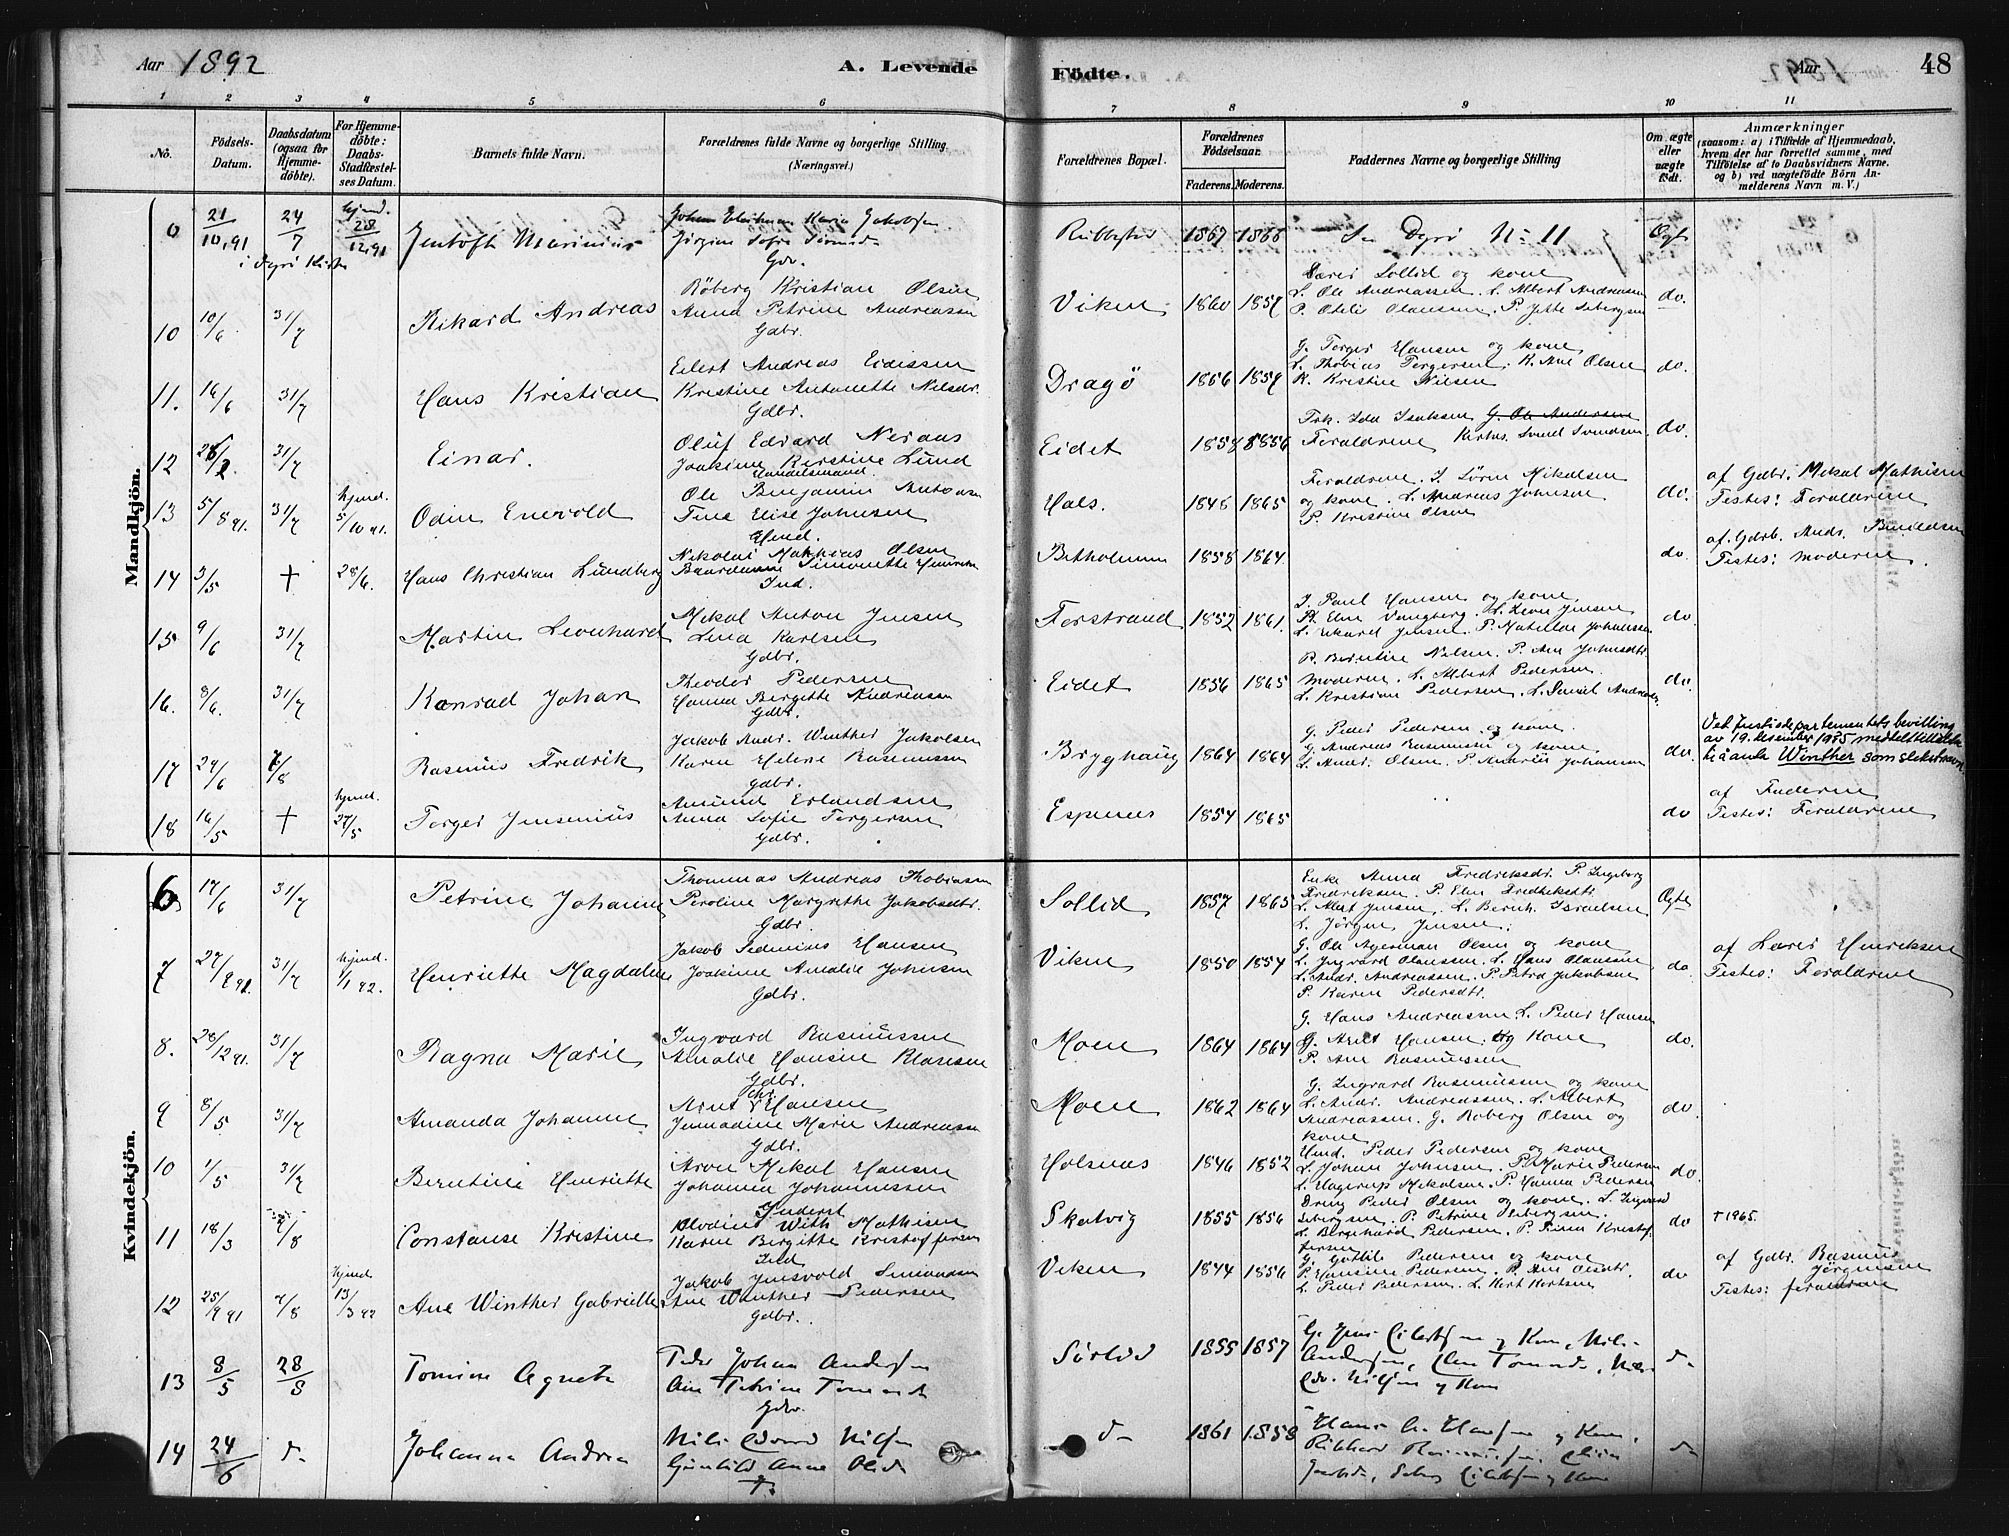 Aar 1892
A. Levende
Födte.
Aar 1892
48
1 2 3 4 5 6 7 8 9 10 11
No.
Födsels-Datum.
Daabsdatum (ogsaa for Hjemme-döbte).
For Hjemme-döbte: Daabs-Stadfæstel-ses Datum.
Barnets fulde Navn.
Forældrenes fulde Navne og borgerlige Stilling (Næringsvei.)
Forældrenes Bopæl.
Forældrenes Födselsaar.
Faderens. Moderens.
Faddernes Navne og borgerlige Stilling
Om ægte eller uægte födt.
Anmærkninger
(saasom: a) i Tilfælde af Hjemmedaab, hvem der har forrettet samme, med Tilföielse af to Daabsvidners Navne. og b) ved uægtefödte Börn An-melderens Navn m. V.)
Mandkjön.
0 21/10,91 24/7 hjmd. 28/12,91 Jentoft Marinius
i Dyrö Kirke
Gdr.
1867 1868 Se Dyrö No 11 Ægte
10 10/6 31/7 Rikard Andreas
Röberg Kristian Olsen
Anna Petrine Andreassen
Gdbr.
Viken 1860 1859
Lærer Sollid og kone
L. Ole Andreassen. L. Albert Andreassen
P. Otelie Olausen. P. Jette Sebergsen
do.
11. 16/6 31/7 Hans Kristian
Eilert Andreas Eidissen
Kristine Antonette Nilsdr.
Gdbr.
Dragö 1856 1859
G. Torger Hansen og kone,
L. Thobias Torgersen. K. Ane Olsen
K. Kristine Nilsen
do.
12 26/2. 31/7 Einar.
Oluf Edvard Neraas
Joakime Kerstine Lund
Handelsmand.
Eidet 1858 1856
Frk. Ida Isaksen G. Ole Andersen
Foraldrene Kirkes. Svend Svendsen
do.
13 5/8 91. 31/7 hjmd. 5/10 91. Odin Enevold
Ole Benjamin Antonsen
Tina Elise Johnsen
Hmd.
Hals. 1848 1865
Foraldrene. I. Sörin Mikalsen
og kone. L. Andreas Johnsen
P. Kristine Olsen
do.
af Gdbr. Mikal Mathisen
Testes: Foraldrene
14 3/5 + 28/6. Hans Christian Lundberg
Nikolai Mathias Olsen
Simonette Henriksen
Ind.
Betholmen 1858 1864
do
af. Gdbr. Andr. Benedksen
Testes: Moderen
15 9/6 31/7 Martin Leonhard
Mikal Anton Jensen
Lina Karlsen
Gdbr.
Forstrand 1852 1861.
I. Paul Hansen og kone,
P. Eline Vangberg. L. Leon Jensen
L. Rikard Jensen. P. Matilde Johansen.
do.
16. 8/6. 31/7 Konrad Johan
Theodor Pedersen
Hanna Bergitte Andreassen
Gdbr.
Eidet 1856 1865
P. Berntine Nilsen. P. Ane Johnsdtr.
Moderen. L. Albert Pedersen.
L. Kristian Pedersen. L. Daniel Andreassen
do.
17 24/6 7/8 Rasmus Fredrik
Jakob Andr. Winther Jakobsen
Karen Helene Rasmussen
gdbr.
Bryghaug 1864 1864
G. Peder Pedersen og kone.
G. Andreas Rasmussen og kone,
L. Andr. Olsen. P. Johansen
do.
Ved Justisdepartementets bevilling
av 19. desember 1925 meddelt tillatelse
til å anta Winther som slektsnavn.
18 16/5 + hjmd. 27/5 Torger Jensenius
Amund Erlandsen
Anna Sofie Torgersen
Gdbr.
Espenes 1854 1865
do
af Faderen
Testes: Foraldrene
Kvindekjön.
6 17/6 31/7 Petrine Johanne
Thommas Andreas Thobiassen
Peroline Margrethe Jakobsdtr.
Gdbr.
Sollid 1857 1865
Enke Anna Fredriksdr. P. Ingeborg
Fredriksen. P. Elen Fredriksdtr.
L. Albert Jensen. L. Bernh. Israelsen
L. Jörgen Jensen.
Ægte
7 27/8 91. 31/7 hjmd. 1/1 92. Henriette Magdalene
Jakob Sednius Hansen
Joakime Amalie Johnsen
Gdbr.
Viken 1850 1854
G. Ole Agerman Olsen og kone
L. Ingvard Olausen. L. Hans Olausen
L. Andr. Andreassen. P. Petra Jakobsen
P. Karen Pedersdtr.
do.
af Lærer Henriksen
Testes: Foraldrene
8. 28/12 91. 31/7 Ragna Marie
Ingvard Rasmussen
Amalie Hansine Klausen
Gdbr.
Moen 1864 1864
G. Hans Andreassen L. Peder Hansen
G. Arnt Hansen og Kone
P. Ane Rasmussen
do.
9 8/5 31/7 Amanda Johanne
Arnt Chr. Hansen
Jensadine Marie Andreassen
Gdbr.
Moen 1862 1864
G. Ingvard Rasmussen og kone
L. Andr. Andreassen. L. Albert
Andreassen. G. Roberg Olsen og
kone
do.
10 1/5 31/7 Berntine Henriette
Aron Mikal Hansen
Johanna Johannessen
Inderst
Holsnæs 1846 1852
Hmd. Peder Pedersen og kone
L. Johan Johnsen. P. Marie Pedersen
L. Hagerup Mikalsen. P. Hanna Pedersen
do.
11 18/3 7/8 Constanse Kristine
Klodius With Mathisen
Karen Birgitte Kristoffersen
Ind
Skatvig 1855 1856
Dreng Peder Olsen og kone. L. Ingvard
Sebergsen. P. Petrine Sebergsen.
L. Bergehard Pedersen. P. Trina Kristof-
fersen
do
† 1965.
12 25/9 91 7/8 hjmd. 13/3 92 Ane Winther Gabrielle
Jakob Jensvold Simonsen
Ane Winther Pedersen
Gdbr.
Viken 1844 1856
G. Gottlib Pedersen og kone
P. Hansine Pedersen. P. Ane Olsdtr.
L. Peder Pedersen. L. Hert Hertsen
do
af Gdbr. Rasmus
Jörgensen
Testes: foraldrene
13 8/5 28/8 Tomine Agnete
Peder Johan Andersen
Ane Petrine
Gdbr
Sörlid 1855 1857
G. Jens Eilertsen og Kone, Nils
Andersen, Nilsen og Kone
do
14 24/6 do Johanna Andrea
Nils Edvard Nilsen
Gunhild Anna
do 1861 1858
Hans A. Hansen og Kone,
Rikhard Rasmussen,
Eilertsen og Kone
do